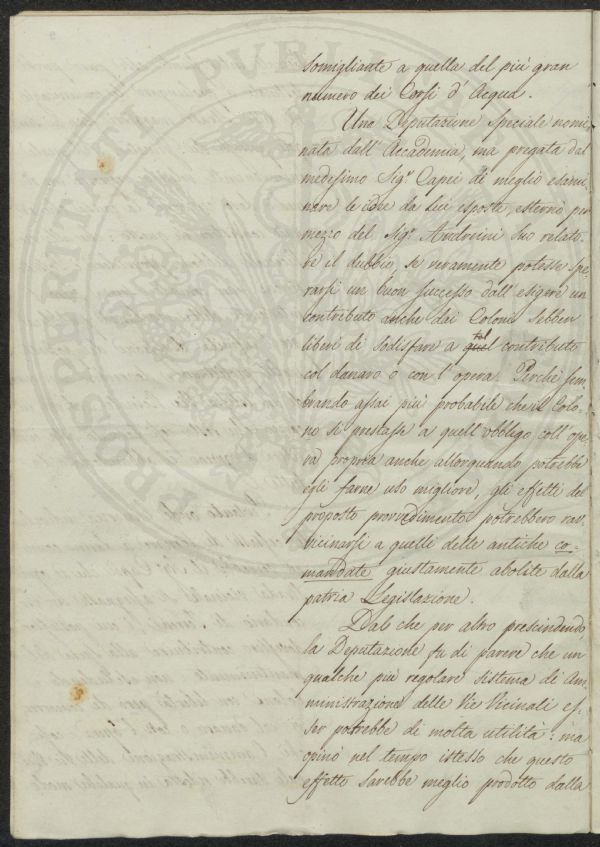 somigliante a quella del più gran
numero dei Corsi d'Acqua.
Una Deputazione speciale nomi
nata dall'Accademia, ma pregata dal
medesimo Sigr Capei di meglio esami,
nare le idee da lui esposte, esternò per
mezzo del Sigr Andreini suo relato-
re il dubbio, se veramente potesse spe,
rarsi un buon successo dall'esigere un
contributo anche dai Coloni sebben
liberi di sodisfare a quel tal contributo
col danaro o con l'opera. Perchè sem
brando assai più probabile che il Colo-
no si prestasse a quell'obbligo coll'ope-
ra propria anche allorquando potrebbe
egli farne uso migliore, gli effetti del
proposto provvedimento potrebbero rav
vicinarsi a quelli delle antiche co-
mandate giustamente abolite dalla
patria Legislazione.
Dal che per altro prescindendo
la Deputazione fu di parere che un
qualche più regolare sistema di Am
ministrazione delle Vie Vicinali es-
ser potrebbe di molta utilità: ma
opinò nel tempo istesso che questo
effetto sarebbe meglio prodotto dalla
PROSPERITATI PVBLI